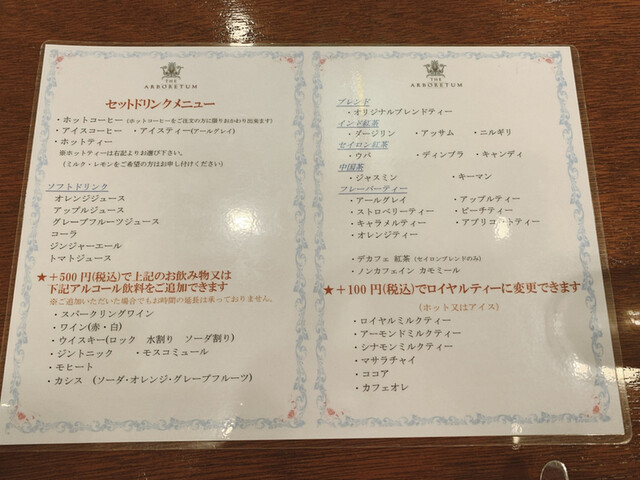 THE
ARBORETUM
セットドリンクメニュー
・ホットコーヒー (ホットコーヒーをご注文の方に限りおかわり出来ます)
・アイスコーヒー ・アイスティー(アールグレイ)
・ホットティー
※ホットティーは右記よりお選び下さい。
(ミルク・レモンをご希望の方はお申し付けください)
ソフトドリンク
オレンジジュース
アップルジュース
グレープフルーツジュース
コーラ
ジンジャーエール
トマトジュース
★+500円(税込)で上記のお飲み物又は
下記アルコール飲料をご追加できます
※ご追加いただいた場合でもお時間の延長は承っておりません。
・スパークリングワイン
・ワイン(赤・白)
・ウイスキー(ロック 水割り ソーダ割り)
・ジントニック ・モスコミュール
・モヒート
・カシス (ソーダ・オレンジ・グレープフルーツ)
THE
ARBORETUM
ブレンド
・オリジナルブレンドティー
インド紅茶
・ダージリン ・アッサム ・ニルギリ
セイロン紅茶
・ウバ ・ディンブラ ・キャンディ
中国茶
・ジャスミン ・キーマン
フレーバーティー
・アールグレイ ・アップルティー
・ストロベリーティー ・ピーチティー
・キャラメルティー ・アプリコットティー
・オレンジティー
・デカフェ 紅茶 (セイロンブレンドのみ)
・ノンカフェイン カモミール
★+100円(税込)でロイヤルティーに変更できます
(ホット又はアイス)
・ロイヤルミルクティー
・アーモンドミルクティー
・シナモンミルクティー
・マサラチャイ
・ココア
・カフェオレ